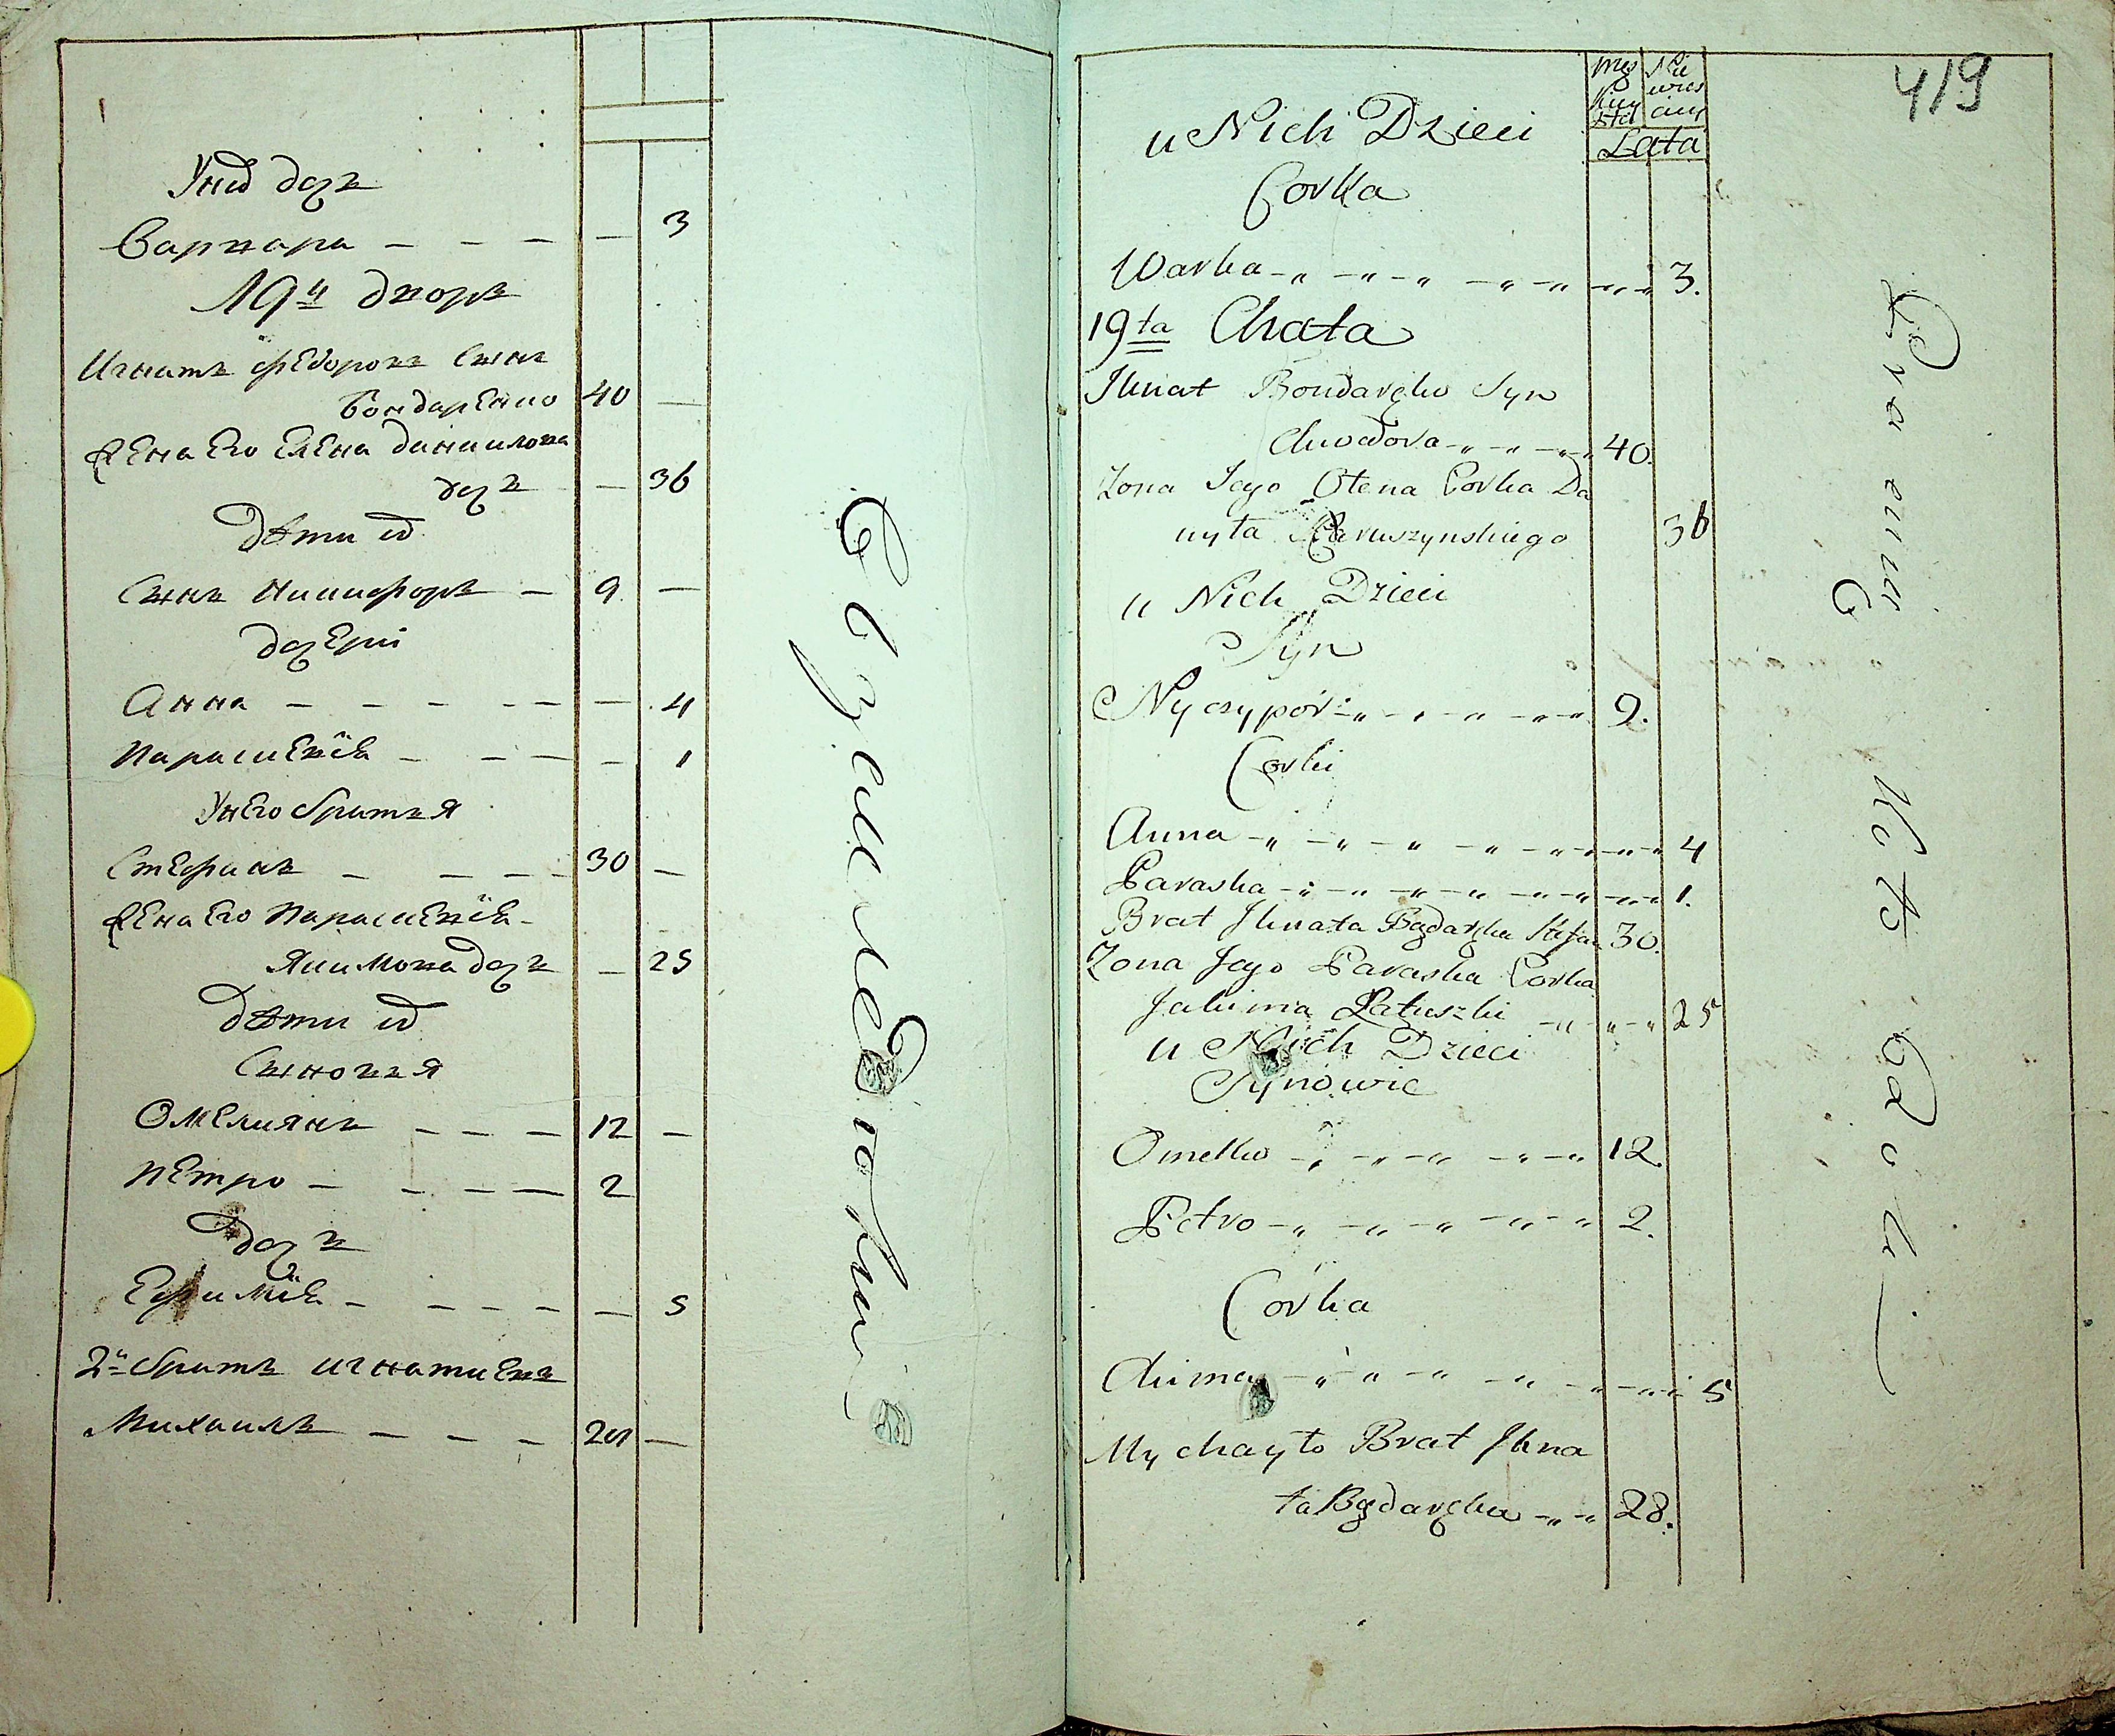 Уних дочь
Варвара — — — — 3
19й дворъ
Игнатъ Федоровъ сынъ
Бондаренко 40 —
жена Его Елена данилова
дочь — 36
дѣти их
Сынъ Никифоръ — 9 —
дочери
Анна — — — — — — 4
Параскевія — — — — 1
Унего братья
Стефанъ — — — — 30 —
жена Его Параскевія
Якимова дочь — 25
Дѣти их
Сыновья
Омелиянъ — — — 12 —
Петро — — — — 2
дочь
Ефимія — — — — — 5
2й братъ игнатиевъ
Михаилъ — — — —
419
Męs Nie
kiey wies
ciey
Lata
u Nich Dzieci
Corka
Warka 3.
19ta Chata
Ihnat Bondaręko Syn
Chwodora 40.
Zona Jego Ołena Corka Da
nyła 36
u Nich Dzieci
Syn
Nyczypor 9.
Corki
Anna 4
Paraska 1.
Brat Ihnata Bądaręka Stefan 30.
Zona Jego Paraska Corka
Jakima 25
u Nich Dzieci
Synowie
Omelko 12.
Petro 2.
Corka
Chima 5
Mychayło Brat Ihna
ta Bądaręka 28.